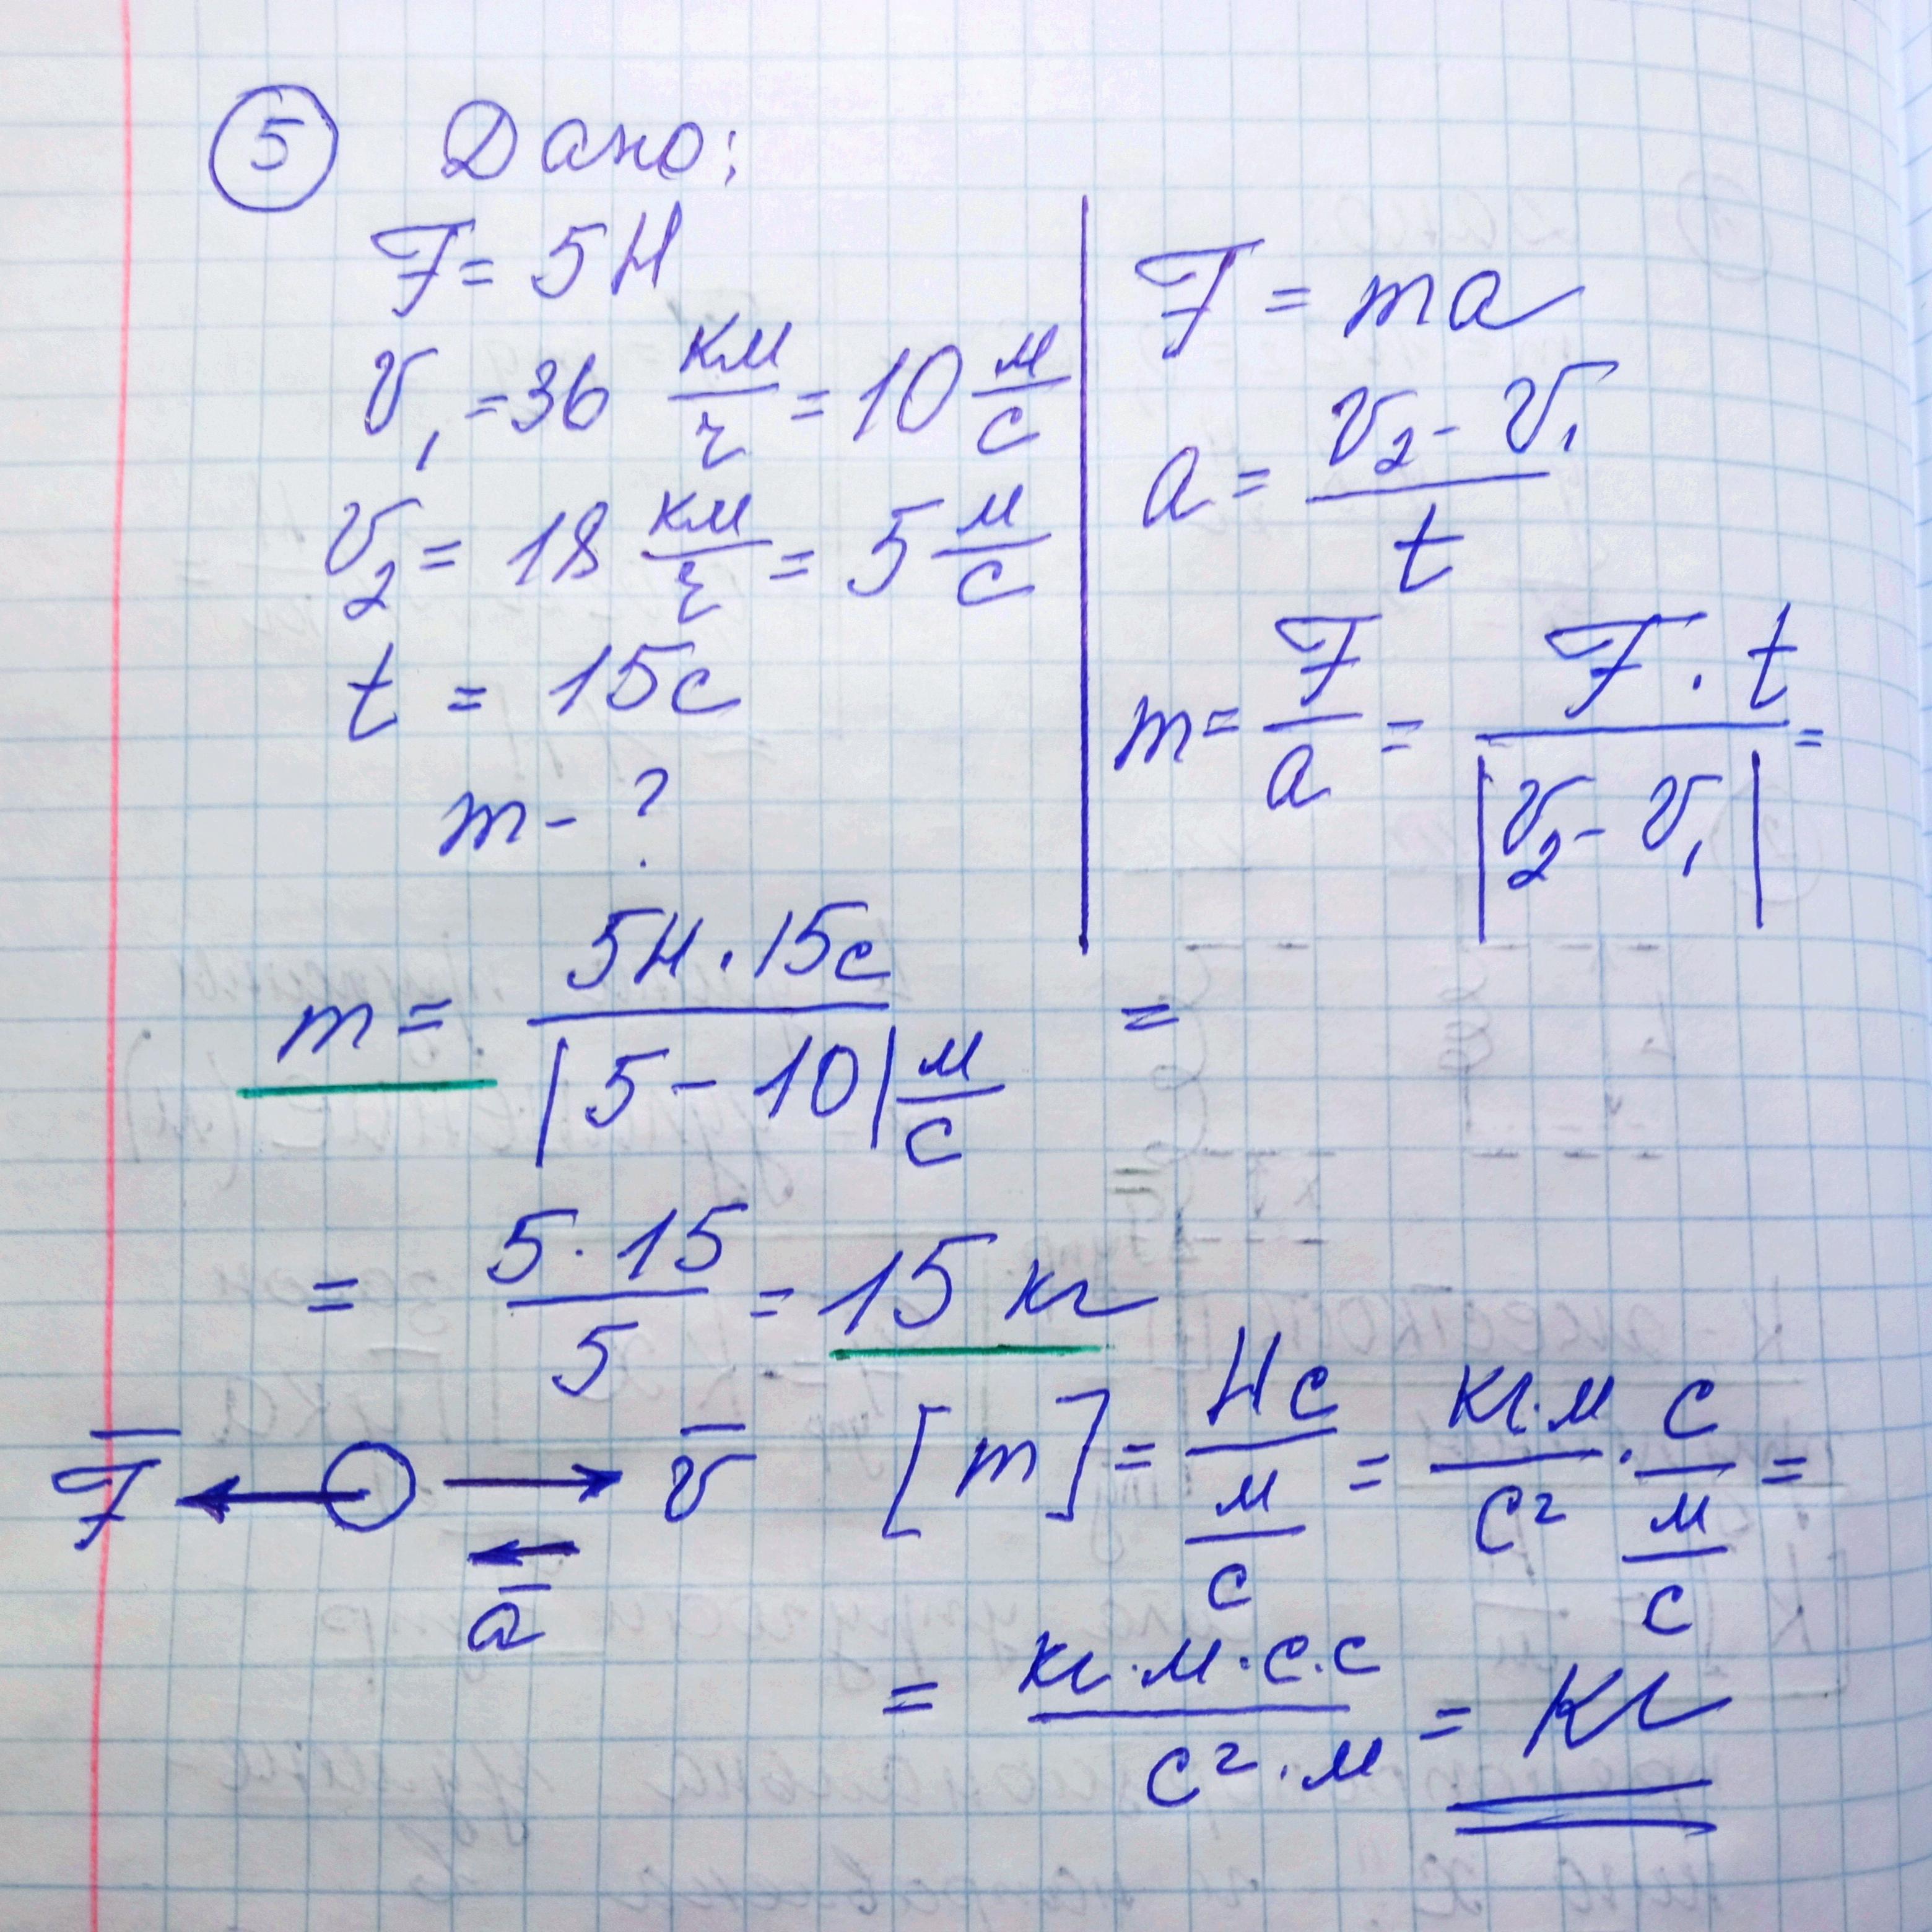 5 Дано:
F = 5Н
v₁ = 36 км/ч = 10 м/с
v₂ = 18 км/ч = 5 м/с
t = 15с
m - ?
F = ma
a = (v₂ - v₁)/t
m = F/a = F · t/|v₂ - v₁| =
m = 5Н · 15с/|5 - 10| м/с =
= 5 · 15/5 = 15 кг
F̅ v̅
a̅
[m] = Нс/(м/с) = кг·м/с² · с/(м/с) =
= кг·м·с·с/с²·м = кг